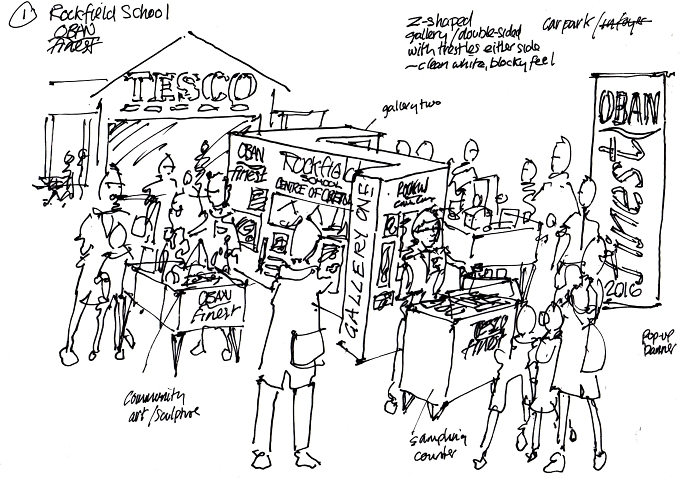 ① Rockfield School
OBAN
finest
Z-shaped
gallery/double-sided
with trestles either side
~ clean white, blocky feel
carpark/in foyer
TESCO
gallery two
OBAN
finest
ROCKFIELD
SCHOOL
GALLERY ONE
OBAN
finest
2016
OBAN
finest
TESCO
finest
pop-up
banner
Community
art/sculpture
sampling
counter